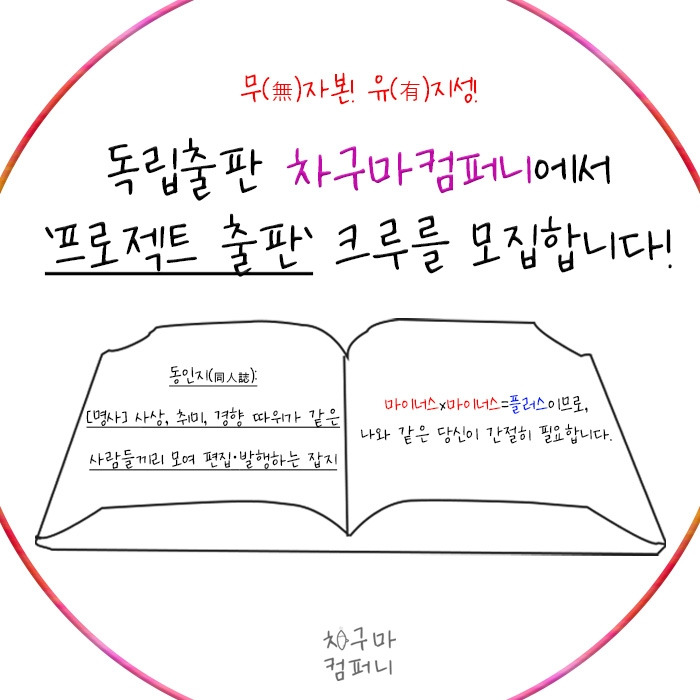 무(無)자본! 유(有)지셍!
독립출판 차구마컴퍼니에서
'프로젝트 출판' 크루를 모집합니다!
동인지(同人誌):
[명사] 사상, 취미, 경향 따위가 같은
사람들끼리 모여 편집·발행하는 잡지
마이너스x마이너스=플러스이므로,
나와 같은 당신이 간절히 필요합니다.
차구마
컴퍼니